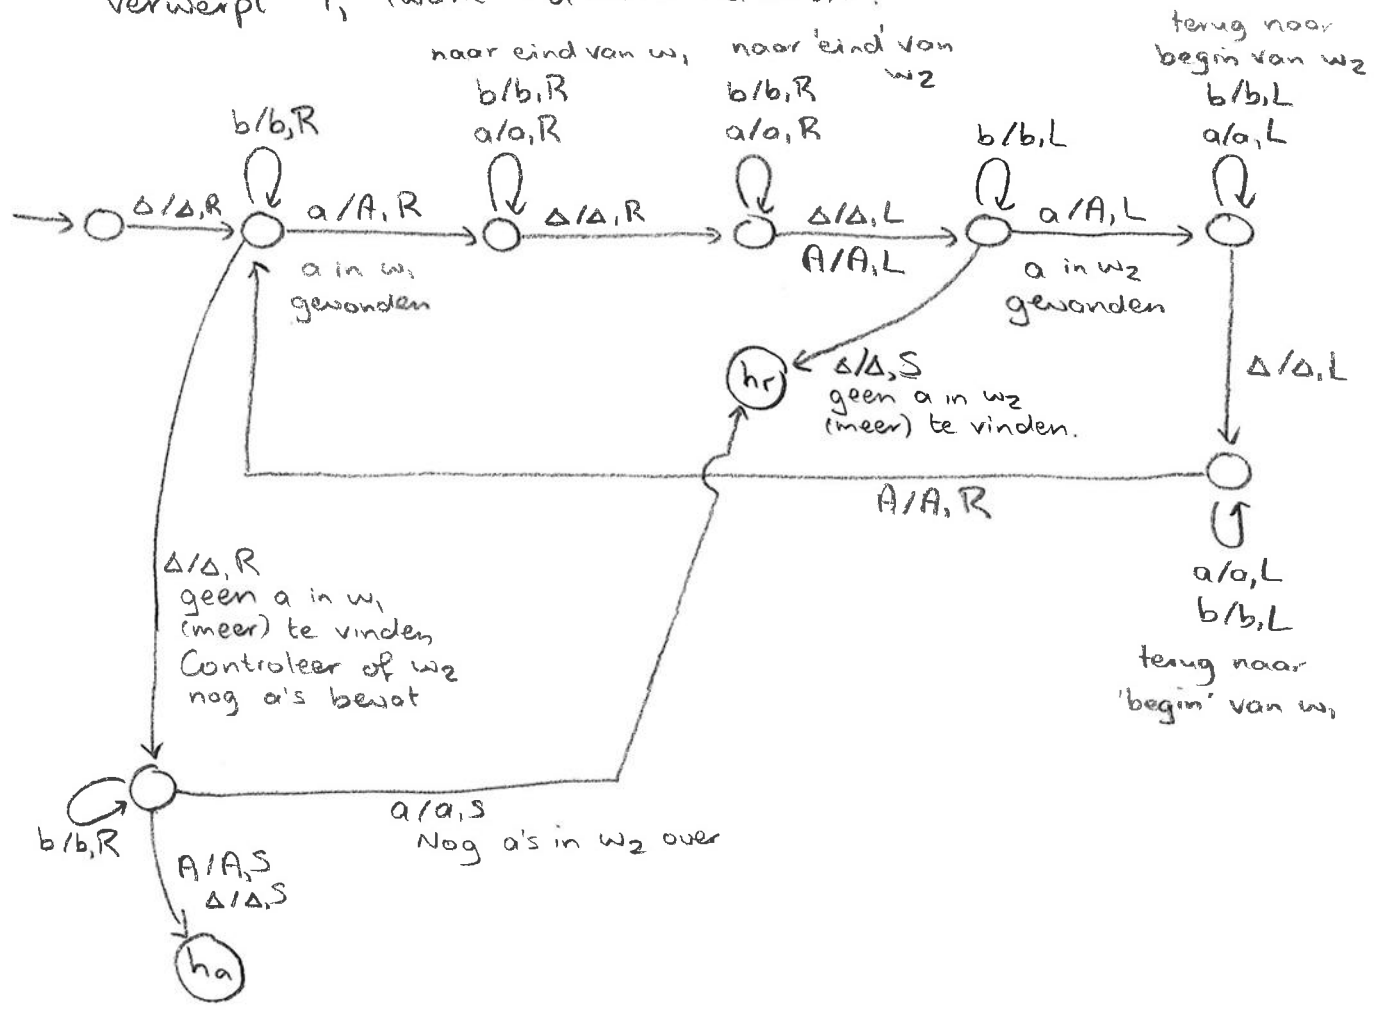 verwerpt
terug naar
begin van w2
b/b,L
a/a,L
naar eind van w1
b/b,R
a/a,R
naar 'eind' van
w2
b/b,R
a/a,R
b/b,R
b/b,L
Δ/Δ,R
a/A,R
Δ/Δ,R
Δ/Δ,L
A/A,L
a/A,L
a in w1
gevonden
a in w2
gevonden
hr
Δ/Δ,S
geen a in w2
(meer) te vinden.
Δ/Δ,L
A/A,R
a/a,L
b/b,L
terug naar
'begin' van w1
Δ/Δ,R
geen a in w1
(meer) te vinden
Controleer of w2
nog a's bevat
b/b,R
a/a,S
Nog a's in w2 over
A/A,S
Δ/Δ,S
ha